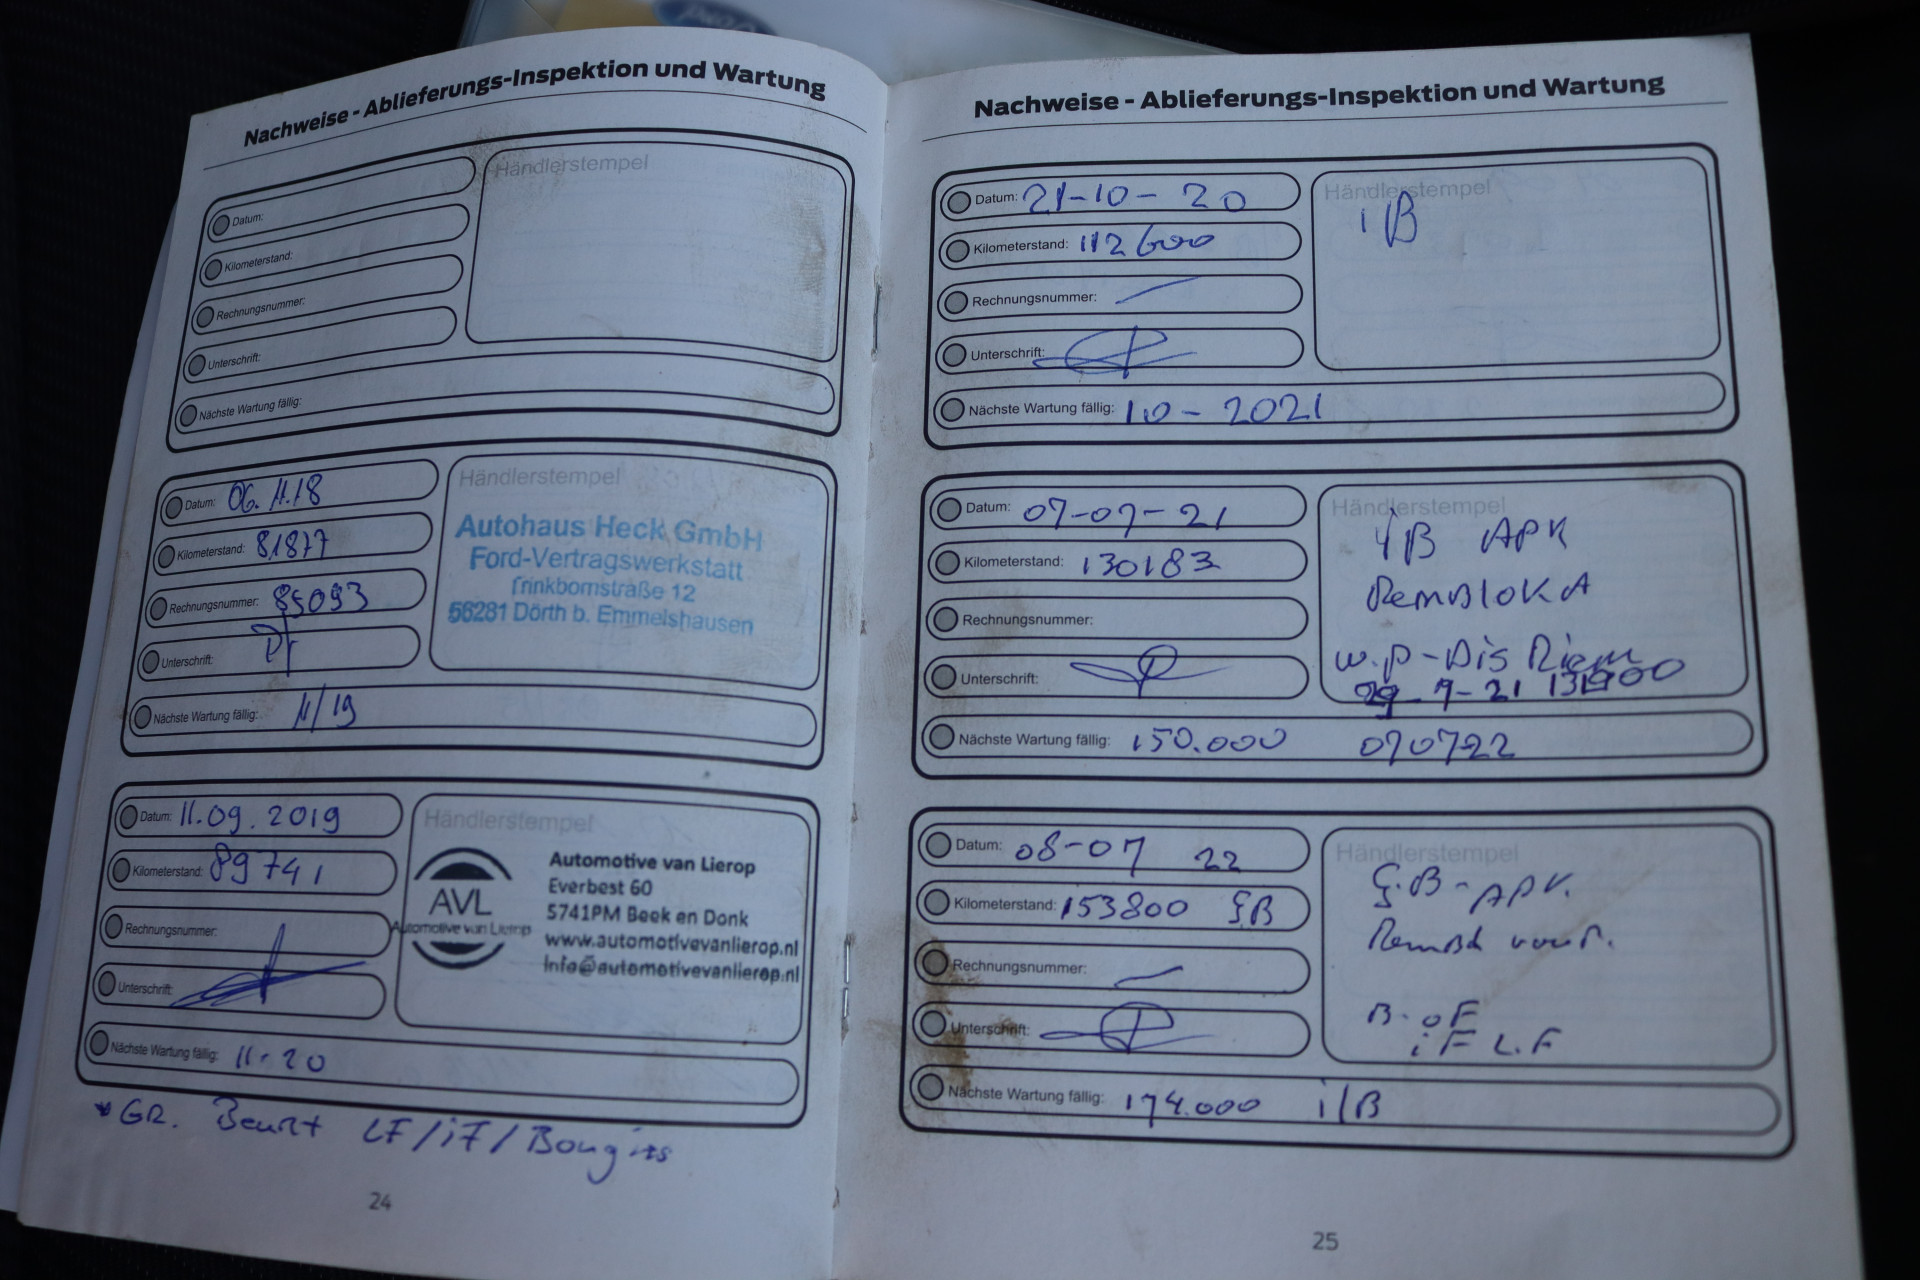 Nachweise - Ablieferungs-Inspektion und Wartung
Datum:
Kilometerstand:
Rechnungsnummer:
Unterschrift:
Nächste Wartung fällig:
Händlerstempel
Datum: 06.11.18
Kilometerstand: 81877
Rechnungsnummer: 85093
Unterschrift:
Nächste Wartung fällig: 11/19
Händlerstempel
Autohaus Heck GmbH
Ford-Vertragswerkstatt
Trinkbornstraße 12
56281 Dörth b. Emmelshausen
Datum: 11.09.2019
Kilometerstand: 89741
Rechnungsnummer:
Unterschrift:
Nächste Wartung fällig: 11-20
Händlerstempel
AVL
Automotive van Lierop
Automotive van Lierop
Everbest 60
5741PM Beek en Donk
www.automotivevanlierop.nl
info@automotivevanlierop.nl
* GR. Beurt LF/iF/Bougies
24
Nachweise - Ablieferungs-Inspektion und Wartung
Datum: 21-10-20
Kilometerstand: 112600
Rechnungsnummer: —
Unterschrift:
Nächste Wartung fällig: 10-2021
Händlerstempel
i/B
Datum: 07-07-21
Kilometerstand: 130183
Rechnungsnummer:
Unterschrift:
Nächste Wartung fällig: 150.000 070722
Händlerstempel
APK
RemBlok A
w.p-Dis Riem
29-7-21
Datum: 08-07 22
Kilometerstand: 153800 GB
Rechnungsnummer: —
Unterschrift:
Nächste Wartung fällig: 174.000 i/B
Händlerstempel
G.B-APK.
B.oF
iF L.F
25